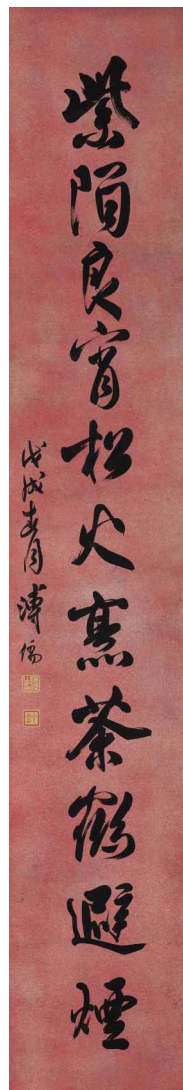 紫陌良宵松火烹茶鶴避煙
戊戌春月溥儒